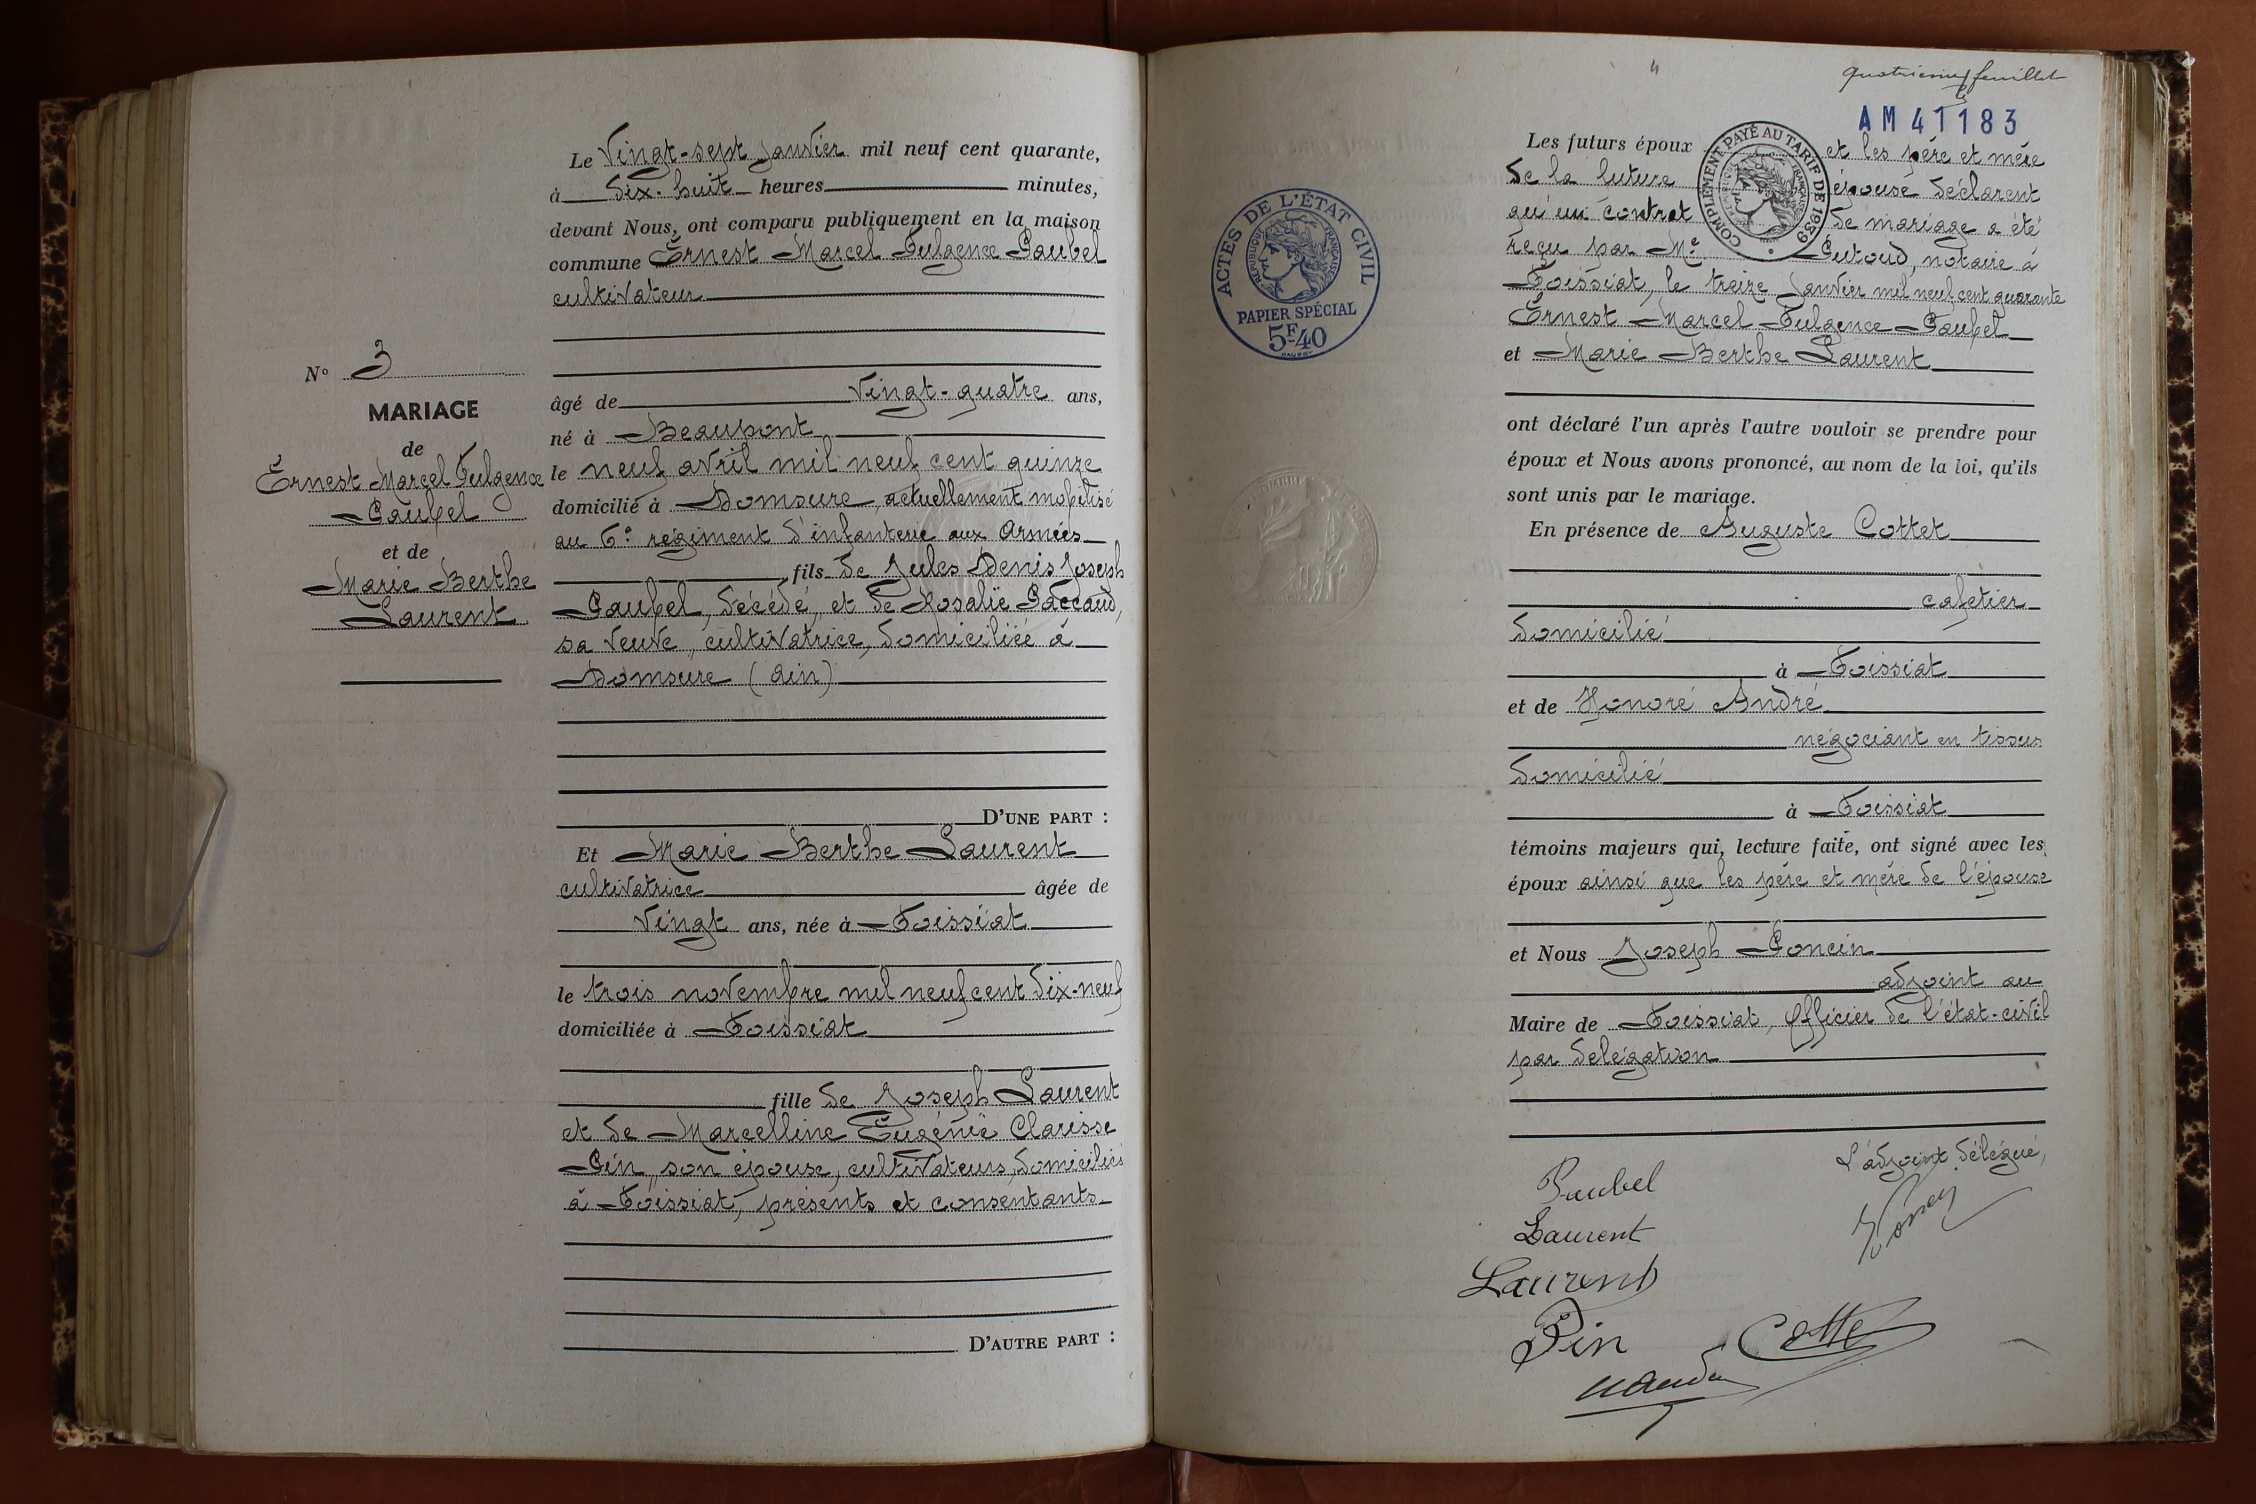 N° 3
MARIAGE
de
Ernest Marcel Fulgence
Paubel
et de
Marie Berthe
Laurent
Le Vingt-sept Janvier mil neuf cent quarante,
à dix-huit heures minutes,
devant Nous, ont comparu publiquement en la maison
commune Ernest Marcel Fulgence Paubel
cultivateur
âgé de Vingt-quatre ans,
né à Beaupont
le neuf avril mil neuf cent quinze
domicilié à Domsure, actuellement mobilisé
au 6e régiment d'infanterie aux Armées
fils de Jules Denis Joseph
Paubel, décédé, et de Rosalie Paccaud,
sa veuve, cultivatrice, domiciliée à
Domsure (Ain)
D'UNE PART :
Et Marie Berthe Laurent
cultivatrice âgée de
Vingt ans, née à Foissiat
le trois novembre mil neuf cent dix-neuf
domiciliée à Foissiat
fille de Joseph Laurent
et de Marcelline Eugénie Clarisse
Pin, son épouse, cultivateurs, domiciliés
à Foissiat, présents et consentants
D'AUTRE PART :
4
quatrième feuillet
AM 41183
ACTES DE L'ÉTAT CIVIL
RÉPUBLIQUE FRANÇAISE
PAPIER SPÉCIAL
5F40
COMPLÉMENT PAYÉ AU TARIF DE 1939
Les futurs époux et les père et mère
de la future épouse déclarent
qu'un contrat de mariage a été
reçu par Me Putoud, notaire à
Foissiat, le treize Janvier mil neuf cent quarante
Ernest Marcel Fulgence Paubel
et Marie Berthe Laurent
ont déclaré l'un après l'autre vouloir se prendre pour
époux et Nous avons prononcé, au nom de la loi, qu'ils
sont unis par le mariage.
En présence de Auguste Cottet
cafetier
domicilié
à Foissiat
et de Honoré André
négociant en tissus
domicilié
à Foissiat
témoins majeurs qui, lecture faite, ont signé avec les
époux ainsi que les père et mère de l'épouse
et Nous Joseph Poncin
adjoint au
Maire de Foissiat, Officier de l'état-civil
par délégation
L'adjoint délégué,
Paubel
Laurent
Laurent
Pin
Cottet